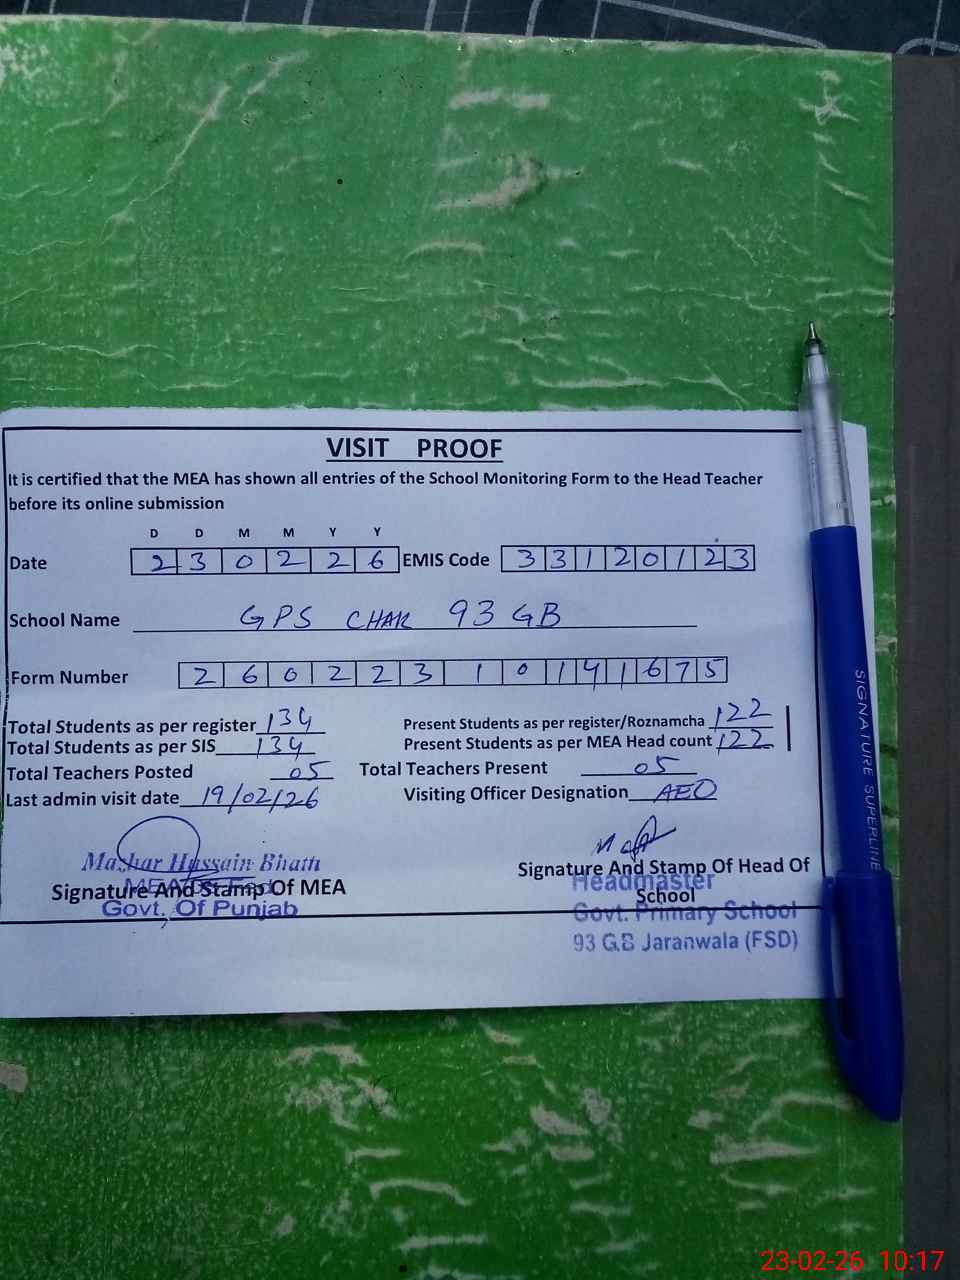 VISIT PROOF
It is certified that the MEA has shown all entries of the School Monitoring Form to the Head Teacher
before its online submission
D D M M Y Y
Date 2 3 0 2 2 6 EMIS Code 3 3 1 2 0 1 2 3
School Name GPS CHAK 93 GB
Form Number 2 6 0 2 2 3 1 0 1 4 1 6 7 5
Total Students as per register 134 Present Students as per register/Roznamcha 122
Total Students as per SIS 134 Present Students as per MEA Head count 122
Total Teachers Posted 05 Total Teachers Present 05
Last admin visit date 19/02/26 Visiting Officer Designation AEO
Mazhar Hussain Bhatti
Signature And Stamp Of MEA
Govt. Of Punjab
Signature And Stamp Of Head Of
School
Headmaster
Govt. Primary School
93 G.B Jaranwala (FSD)
SIGNATURE SUPERLINE
23-02-26 10:17